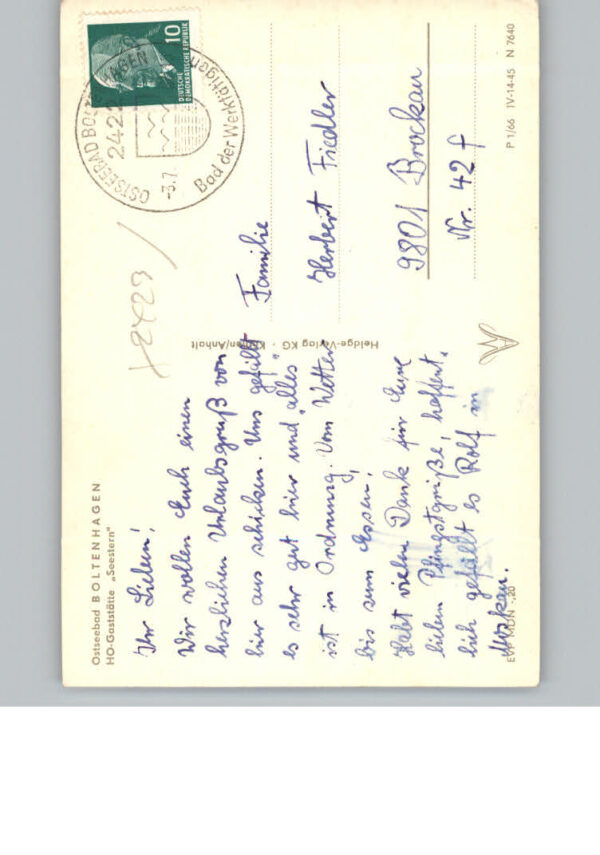 Ostseebad BOLTENHAGEN
HO-Gaststätte „Seestern"
Ihr Lieben!
Wir wollen Euch einen
herzlichen Urlaubsgruß von
hier aus schicken. Uns gefällt
es sehr gut hier und „alles"
ist in Ordnung. Vom Wetter
bis zum Essen.
Habt vielen Dank für Eure
lieben Pfingstgrüße, hoffent-
lich gefällt es Rolf in
Moskau.
EVP MDN -,20
Heldge-Verlag KG · Köthen/Anhalt
OSTSEEBAD
242
-3.7.
Bad der Werktätigen
10
DEUTSCHE
DEMOKRATISCHE REPUBLIK
Familie
Herbert Fiedler
9801 Brockau
Nr. 42 f
P 1/66 IV-14-45 N 7640